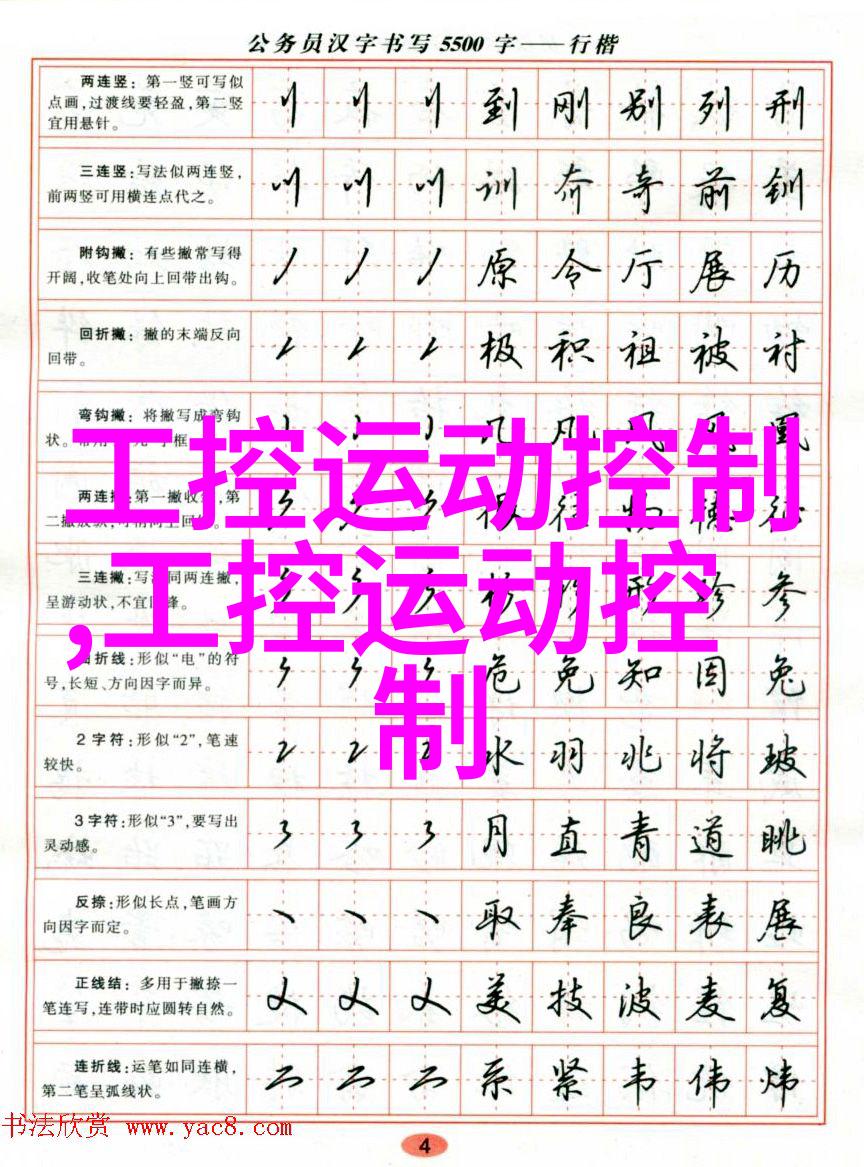 公务员汉字书写5500字——行楷
两连竖：第一竖可写似
点画,过渡线要轻盈,第二竖
宜用悬针。
到 刚 别 列 刑
三连竖:写法似两连竖,
前两竖可用横连点代之。
训 奔 奇 前 钏
附钩撇：有些撇常写得
开阔,收笔处向上回带出钩。
原 令 厅 展 历
回折撇：撇的末端反向
回带。
极 积 祖 被 衬
弯钩撇：将撇写成弯钩
状。
凡 凰
工控运动控制
两连 第一撇收 第
二撇
三连撇:写 同两连撇,
呈游动状,不宜回锋。
形 珍 参
,工控运动控
折线:形似“电”的符
号,长短、方向因字而异。
危 免 知 因 兔
制
2字符:形似“2”,笔速
较快。
水 羽 兆 将 玻
3字符:形似“3”,要写出
灵动感。
月 直 青 道 眺
反捺:形似长点,笔画方
向因字而定。
取 奉 良 表 展
正线结：多用于撇捺一
笔连写,连带时应圆转自然。
美 技 波 麦 复
连折线:运笔如同连横,
第二笔呈弧线状。
系 紧 韦 伟 炜
书法欣赏 www.yac8.com
4